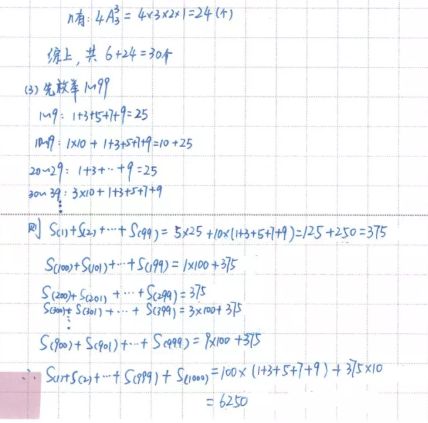 n有: 4A₃³ = 4×3×2×1=24(个)
综上, 共 6+24=30个
(3) 先放单 1~99
1~9: 1+3+5+7+9=25
10~19: 1×10 + 1+3+5+7+9=10+25
20~29: 1+3+…+9=25
30~39: 3×10+1+3+5+7+9
⋮
则 S(1)+S(2)+…+S(99)= 5×25+10×(1+3+5+7+9)=125+250=375
S(100)+S(101)+…+S(199)=1×100+375
S(200)+S(201)+…+S(299)=375
S(300)+S(301)+…+S(399)=3×100+375
⋮
S(900)+S(901)+…+S(999)=9×100+375
∴ S(1)+S(2)+…+S(999)+S(1000)=100×(1+3+5+7+9)+375×10
=6250